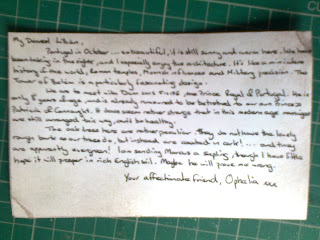 My Dearest Lillian,
Portugal in October ... so beautiful, it is still sunny and warm here. We have
been taking in the sights, and I especially enjoy the architecture. It's like a miniature
history of the world, Roman temples, Moorish influences and Military precision. The
Tower of Belém is a particularly fascinating design.
We are to meet with Dom Luís Filipe, the Prince Royal of Portugal. He is
only 5 years of age, and is already rumoured to be betrothed to our own Princess
Patricia of Connaught. It does seem rather strange that in this modern age marriages
are still arranged this way, and so healthy.
The oak trees here are rather peculiar. They do not have the lovely
rough bark as our trees do, but instead are coated in cork! ... and they
are apparently evergreen! I am sending Marcus a sapling, though I have little
hope it will prosper in rich English soil. Maybe he will prove me wrong.
Your affectionate friend, Ophelia xxx